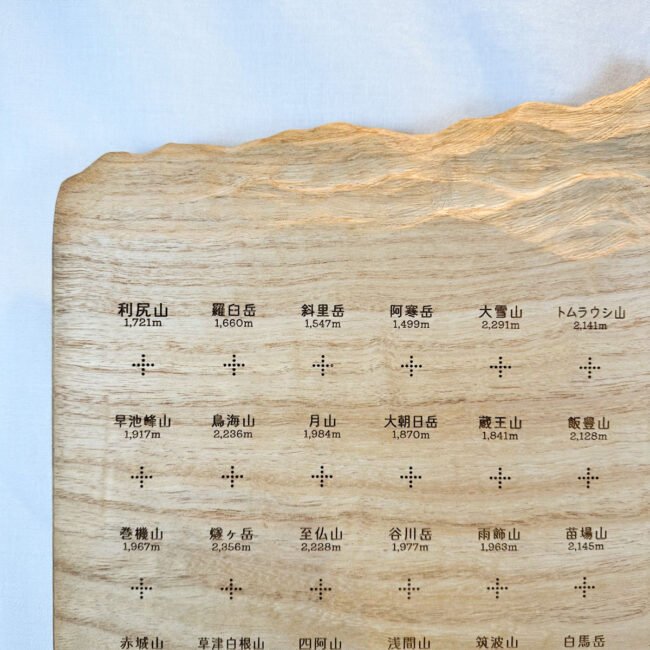 利尻山 羅臼岳 斜里岳 阿寒岳 大雪山 トムラウシ山
1,721m 1,660m 1,547m 1,499m 2,291m 2,141m
早池峰山 鳥海山 月山 大朝日岳 蔵王山 飯豊山
1,917m 2,236m 1,984m 1,870m 1,841m 2,128m
巻機山 燧ヶ岳 至仏山 谷川岳 雨飾山 苗場山
1,967m 2,356m 2,228m 1,977m 1,963m 2,145m
赤城山 草津白根山 四阿山 浅間山 筑波山 白馬岳